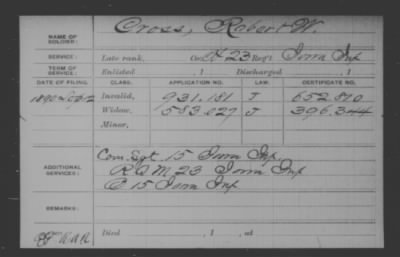 NAME OF SOLDIER: Cross, Robert W.
SERVICE: Late rank, Co. K 23 Reg't Iowa Inf
TERM OF SERVICE: Enlisted , 1 Discharged , 1
DATE OF FILING. CLASS. APPLICATION NO. LAW. CERTIFICATE NO.
1890 Invalid, 931.181 J 652.810
Widow, 583.027 J 396.344
Minor,
ADDITIONAL SERVICES: Com. Sgt. 15 Iowa Inf.
R Q M 23 Iowa Inf
C 15 Iowa Inf
REMARKS:
Died , 1 , at